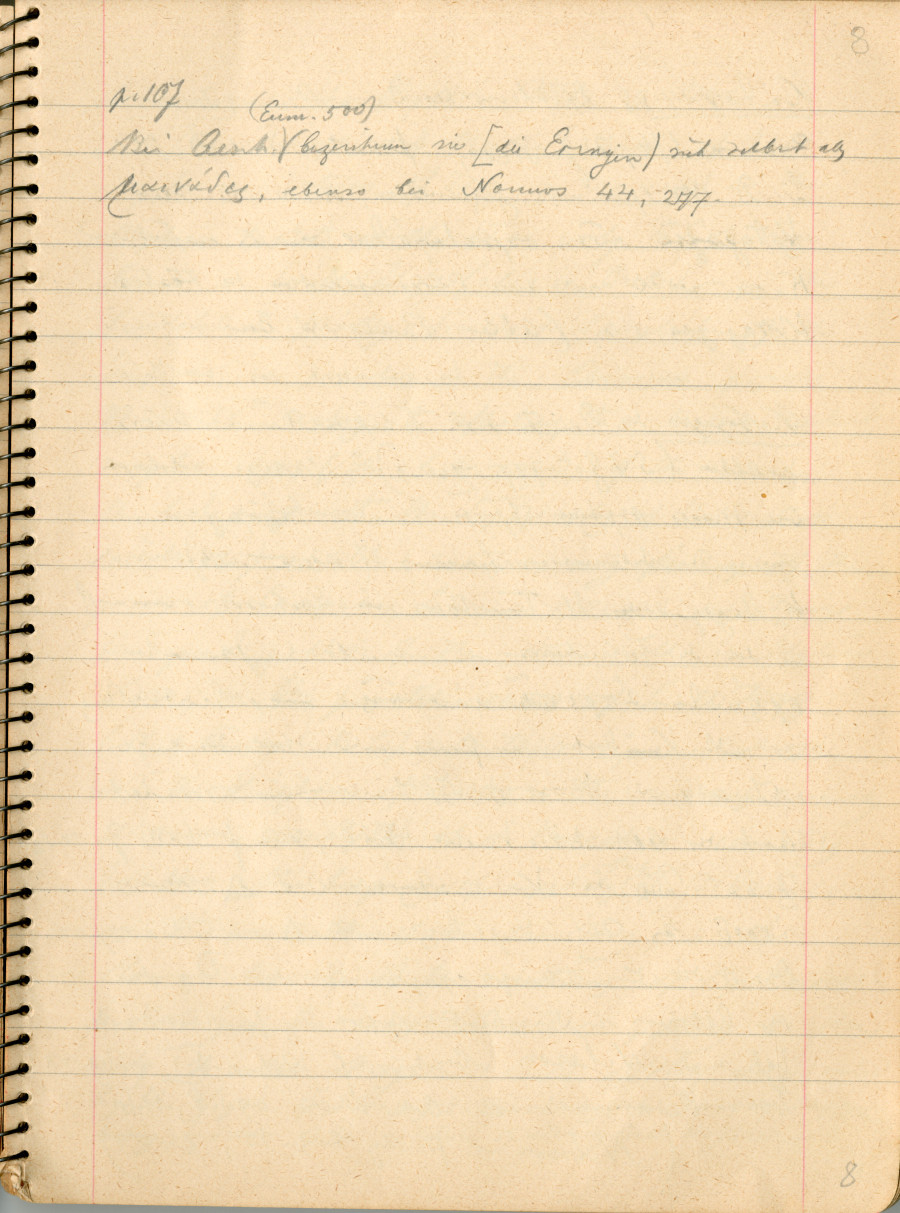 8
p. 107
(Eum. 500)
Bei Aesch.) bezeichnen sie [die Erinyen) sich selbst als
μαινάδες, ebenso bei Nonnos 44, 277.
8